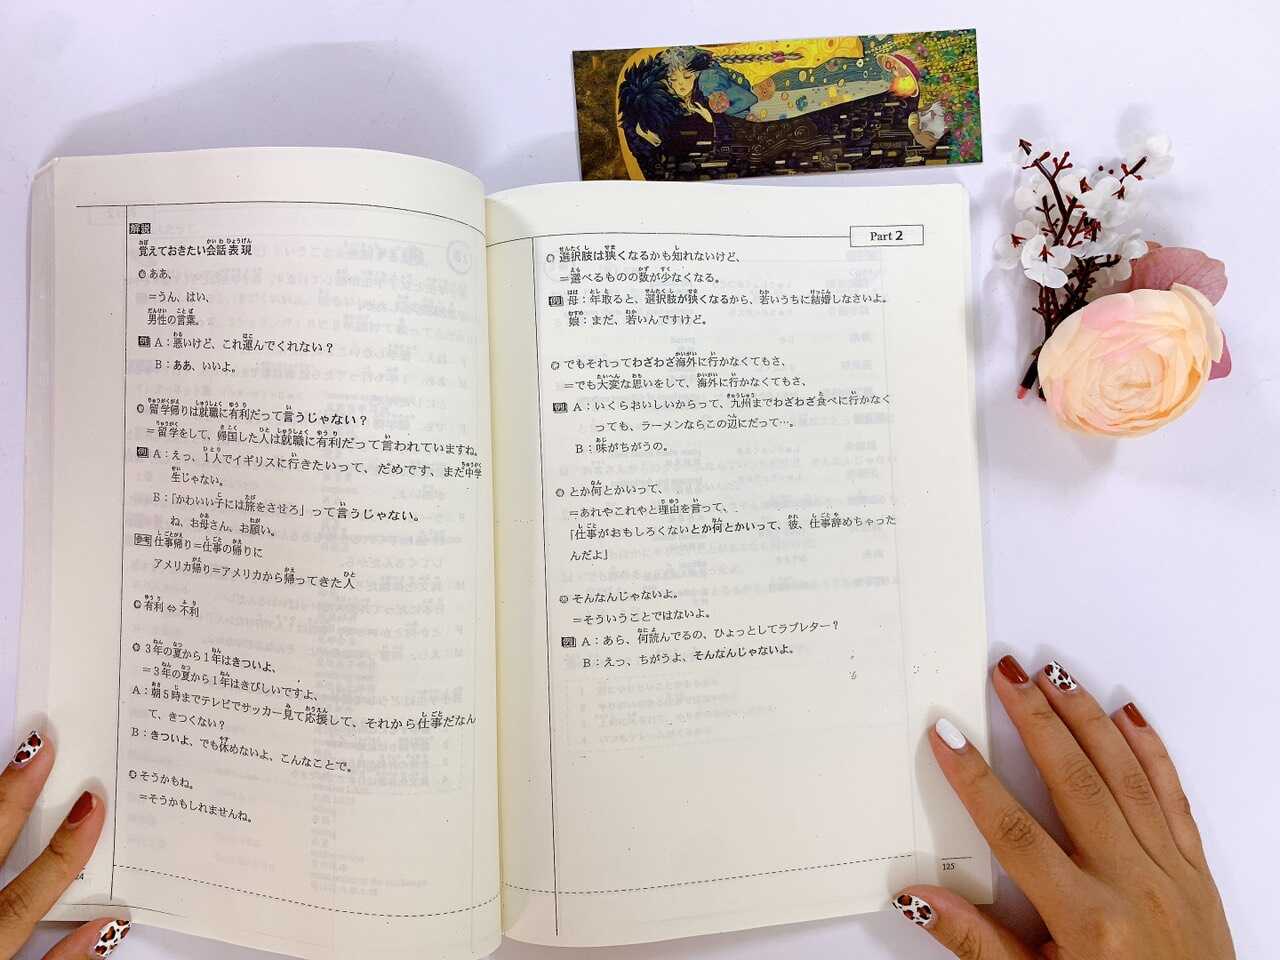 解説
覚えておきたい会話表現
ああ、
＝うん、はい、
男性の言葉。
例 A：悪いけど、これ運んでくれない？
B：ああ、いいよ。
留学帰りは就職に有利だって言うじゃない？
＝留学をして、帰国した人は就職に有利だって言われていますね。
例 A：えっ、1人でイギリスに行きたいって、だめです、まだ中学
生じゃない。
B：「かわいい子には旅をさせろ」って言うじゃない。
ね、お母さん、お願い。
参考 仕事帰り＝仕事の帰りに
アメリカ帰り＝アメリカから帰ってきた人
有利 ⇔ 不利
3年の夏から1年はきついよ、
＝3年の夏から1年はきびしいですよ、
A：朝5時までテレビでサッカー見て応援して、それから仕事だなん
て、きつくない？
B：きついよ、でも休めないよ、こんなことで。
そうかもね。
＝そうかもしれませんね。
24
Part 2
選択肢は狭くなるかも知れないけど、
＝選べるものの数が少なくなる。
例 母：年取ると、選択肢が狭くなるから、若いうちに結婚しなさいよ。
娘：まだ、若いんですけど。
でもそれってわざわざ海外に行かなくてもさ、
＝でも大変な思いをして、海外に行かなくてもさ、
例 A：いくらおいしいからって、九州までわざわざ食べに行かなく
っても、ラーメンならこの辺にだって…。
B：味がちがうの。
とか何とかいって、
＝あれやこれやと理由を言って、
「仕事がおもしろくないとか何とかいって、彼、仕事辞めちゃった
んだよ」
そんなんじゃないよ。
＝そういうことではないよ。
例 A：あら、何読んでるの、ひょっとしてラブレター？
B：えっ、ちがうよ、そんなんじゃないよ。
125